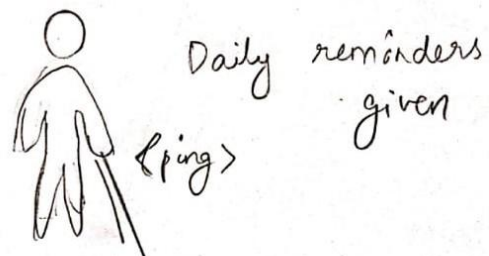 Daily reminders
given
<ping>